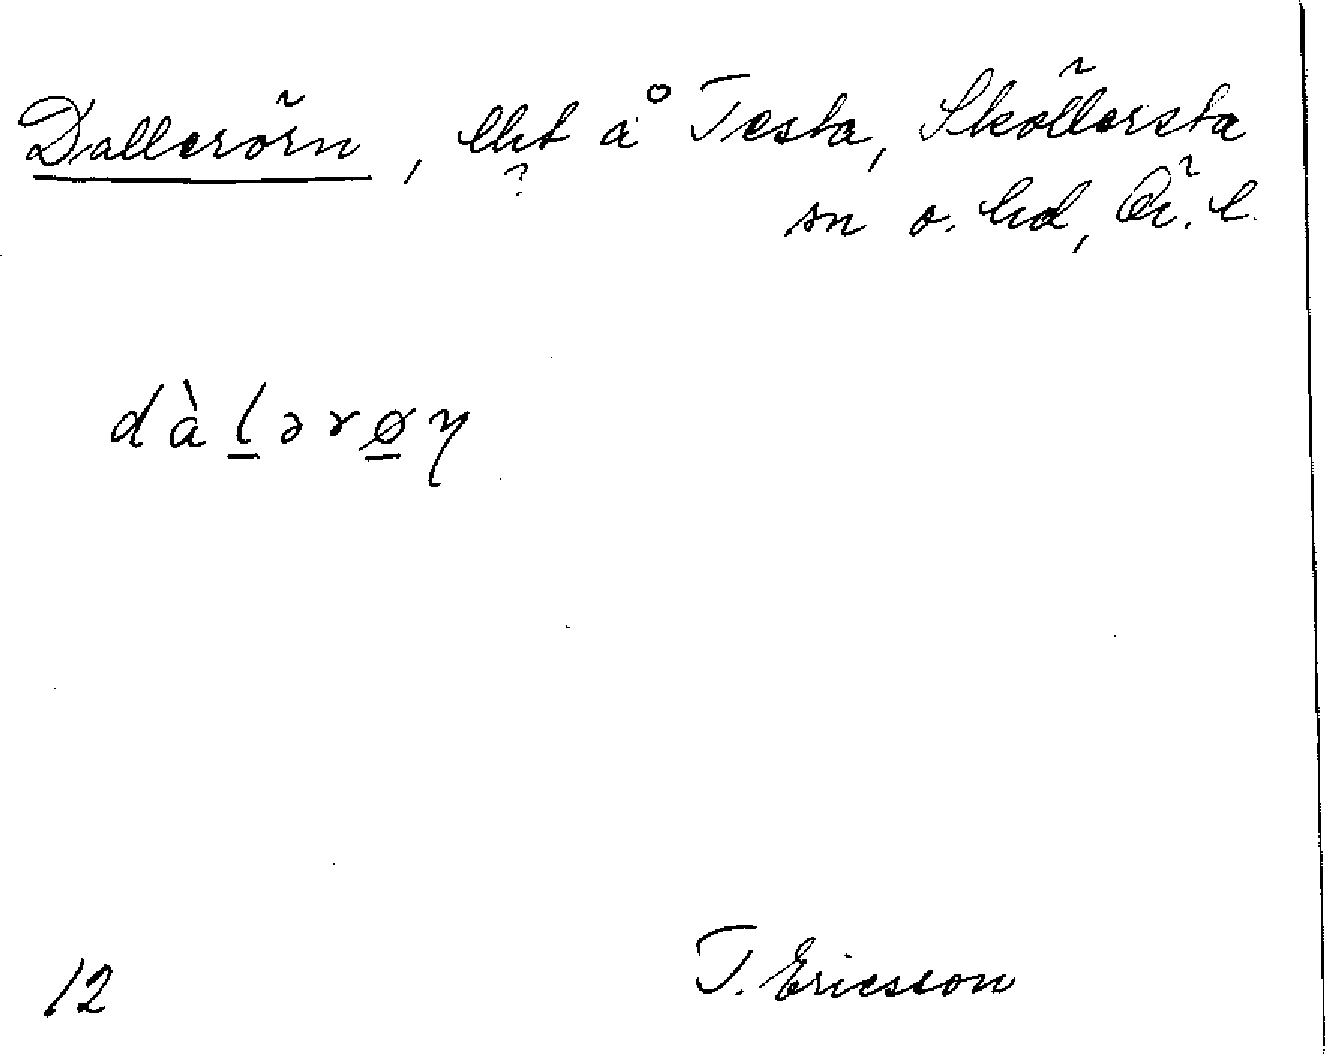 Dallerörn, lht å Testa, Sköllersta
?
sn o. hd, Ör. l.
dàlərøn
12
T. Ericsson